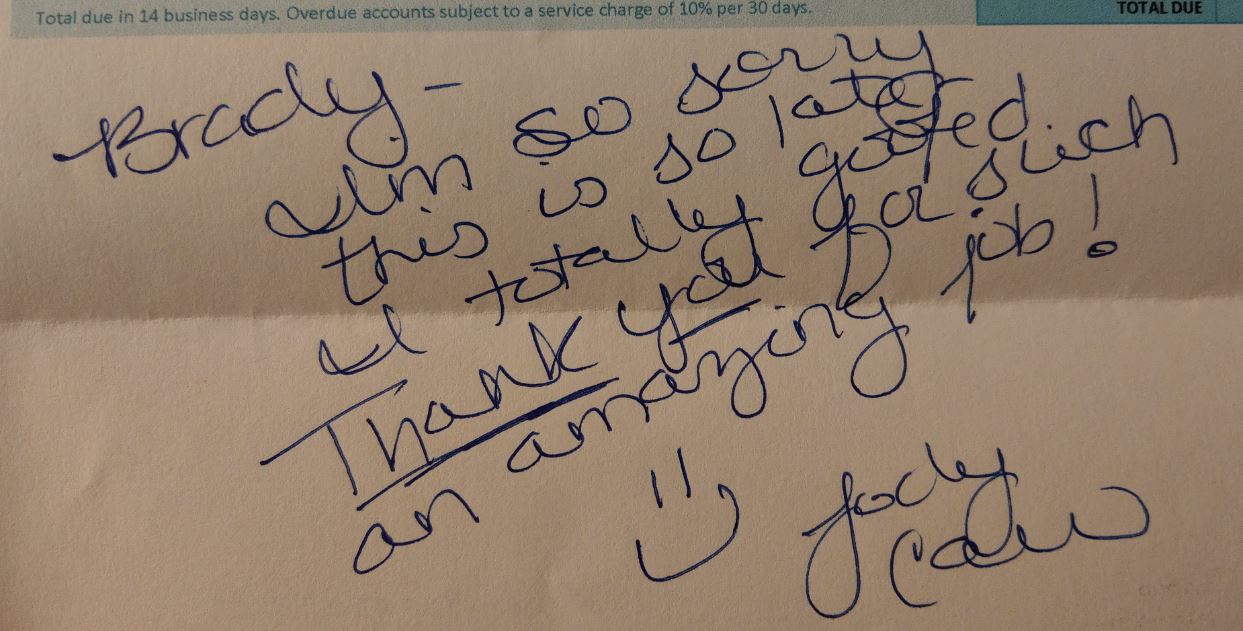 Total due in 14 business days. Overdue accounts subject to a service charge of 10% per 30 days.
TOTAL DUE
Brady -
I'm so sorry
this is so late
I totally goofed.
Thank you for such
an amazing job!
Jody